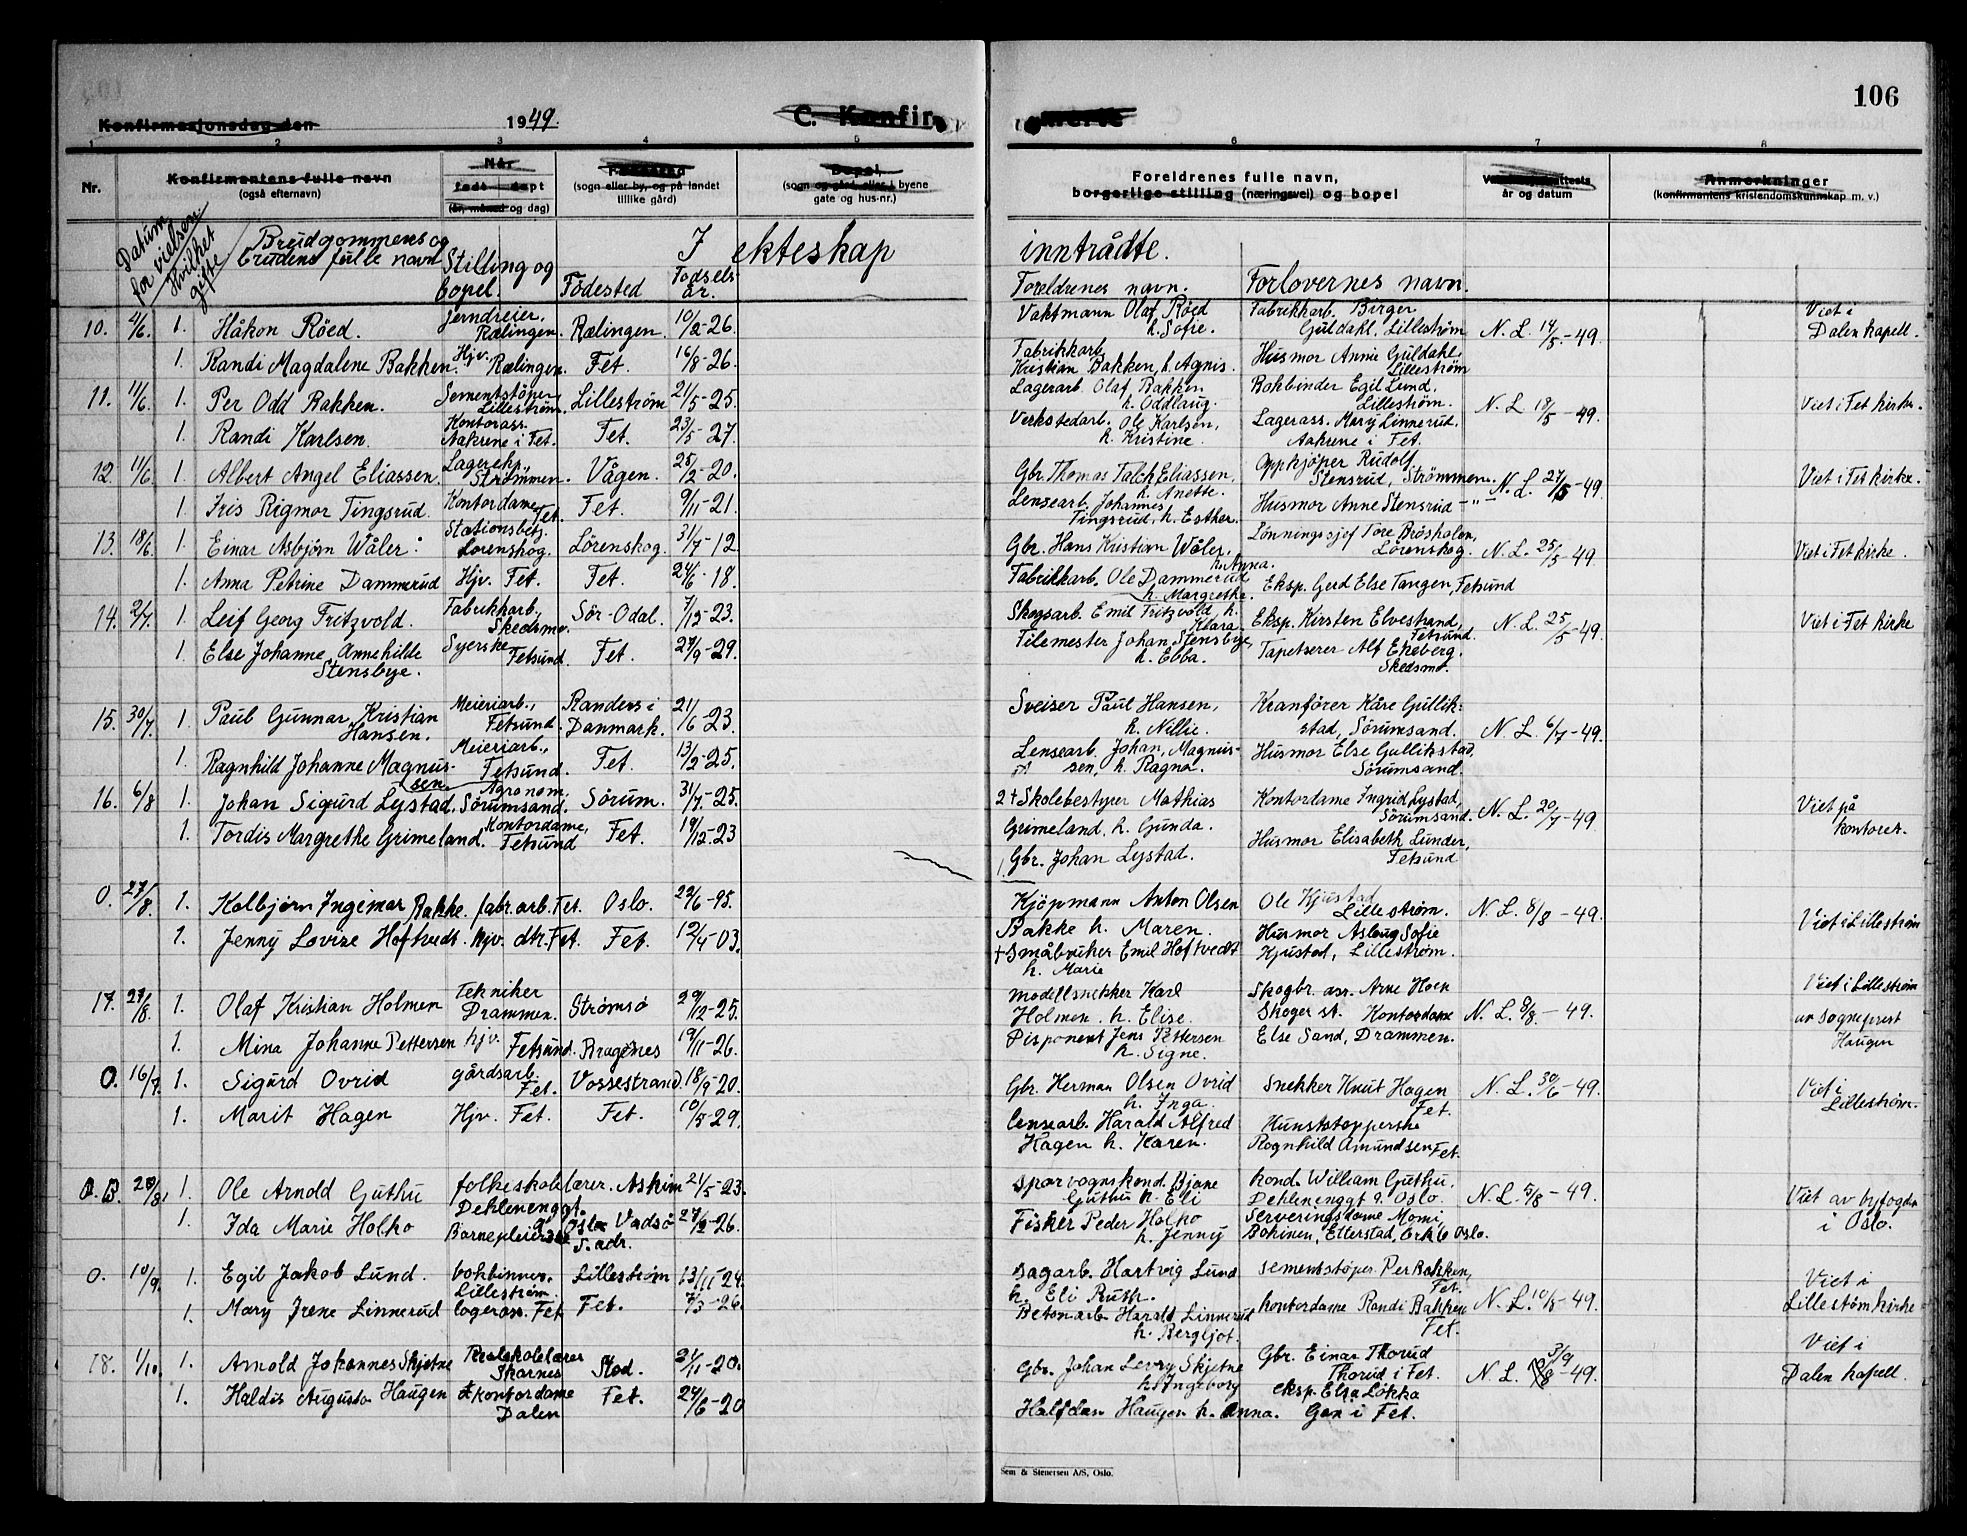 106
Konfirmasjonsdag den 1949. C. Konfir merte
1 2 3 4 5 6 7 8
Nr. Konfirmantens fulle navn (også efternavn)
Når født døpt (år, måned og dag)
Fødested (sogn eller by, og på landet tillike gård)
Bopel, (sogn og gård, eller i byene gate og hus-nr.)
Foreldrenes fulle navn, borgerlige stilling (næringsvei) og bopel
år og datum
Anmerkninger (konfirmantens kristendomskunnskap m. v.)
I ekteskap inntrådte.
Datum for vielsen Hvilket gifte
Brudgommens og brudens fulle navn
Stilling og bopel.
Födested
Födselsår.
Foreldrenes navn.
Forlovernes navn.
10. 4/6 1. Håkon Röed. Jerndreier, Rælingen. Rælingen. 10/2-26. Vaktmann Olaf Röed h. Sofie. Fabrikkarb. Birger Guldahl, Lilleström N.L. 14/5-49. Viet i Dalen kapell.
1. Randi Magdalene Bakken. Hjv. Rælingen. Fet. 16/8-26. Fabrikkarb. Kristian Bakken, h. Agnis. Husmor Annie Guldahl, Lilleström
11. 11/6 1. Per Odd Bakken. Sementstöper Lilleström. Lilleström 21/5-25. Lagerarb. Olaf Bakken h. Oddlaug. Bokbinder Egil Lund. Lilleström. N.L. 18/5-49. Viet i Fet kirke.
1. Randi Karlsen. Kontorass. Aakrene i Fet. Fet. 23/5-27. Verkstedarb. Ole Karlsen, h. Kristine. Lagerass. Mary Linnerud, Aakrene i Fet.
12. 11/6 1. Albert Angel Eliassen. Lagereksp., Strömmen. Vågen. 25/12-20. Gbr. Thomas Falck Eliassen, h. Anette. Oppkjöper Rudolf Stensrud, Strömmen. N.L. 27/5-49. Viet i Fet kirke.
1. Iris Rigmor Tingsrud. Kontordame Fet. Fet. 9/11-21. Lensearb. Johannes Tingsrud, h. Esther. Husmor Anne Stensrud -"-
13. 18/6 1. Einar Asbjörn Wåler. Stationsbetj. Lorenskog. Lörenskog. 31/7-12 Gbr. Hans Kristian Wåler, h. Anna. Lönningssjef Tore Bröskolen, Lörenskog. N.L. 25/5-49. Viet i Fet kirke.
1. Anna Petrine Dammerud Hjv. Fet. Fet. 24/6-18. Fabrikkarb. Ole Dammerud h. Margrethe. Eksp. Gerd Else Tangen, Fetsund
14. 2/7 1. Leif Georg Fritzvold. Fabrikkarb., Skedsmo. Sör-Odal. 7/12-23. Skogsarb. Emil Fritzvold, h. Klara. Eksp. Kirsten Elvestrand, Fetsund. N.L. 25/5-49. Viet i Fet kirke
1. Else Johanne Annehilde Stensbye. Syerske Fetsund Fet. 27/9-29. Filemester Johan Stensbye, h. Ebba. Tapetserer Alf Ekeberg. Skedsmo.
15. 30/7. 1. Paul Gunnar Kristian Hansen. Meieriarb., Fetsund. Randers i Danmark. 21/6-23. Sveiser Paul Hansen, h. Nillie. Kranförer Kåre Gullikstad, Sörumsand. N.L. 6/7-49.
1. Ragnhild Johanne Magnussen Meieriarb., Fetsund. Fet. 13/2-25. Lensearb. Johan Magnussen, h. Ragna. Husmor Else Gullikstad, Sörumsand.
16. 6/8 1. Johan Sigurd Lystad. Agronom. Sörumsand. Sörum. 31/7-25. 2 + Skolebestyrer Mathias Grimeland, h. Gunda. Kontordame Ingrid Lystad, Sörumsand. N.L. 20/7-49. Viet på kontoret.
1. Tordis Margrethe Grimeland. Kontordame, Fetsund Fet. 19/12-23 1. Gbr. Johan Lystad. Husmor Elisabeth Lunder, Fetsund
0. 27/8. 1. Kolbjørn Ingemar Bakke. fabr.arb. Fet. Oslo. 22/6-95. Kjöpmann Anton Olsen Bakke h. Maren. Ole Kjustad Lillestrøm. N.L. 8/8-49. Viet i Lillestrøm
1. Jenny Lovise Hoftvedt. hjv. dtr. Fet. Fet. 12/4-03. + Småbruker Emil Hoftvedt h. Marie Husmor Aslaug Sofie Kjustad, Lillestrøm.
17. 27/8. 1. Olaf Kristian Holmen Tekniker Drammen. Strømsö 29/12-25. Modellsnekker Karl Holmen. h. Elise. Skogbr. ass. Arne Hoen Skoger st. Kontordame N.L. 9/8.-49. Viet i Lillestrøm av sogneprest Haugen
1. Mina Johanne Pettersen hjv. Fetsund. Bragenes 19/11-26. Disponent Jens Pettersen h. Signe. Else Sand, Drammen.
0. 16/7 1. Sigurd Ovrid gårdsarb. Fet. Vossestrand. 18/9-20. Gbr. Herman Olsen Ovrid h. Inga. Snekker Knut Hagen Fet. N.L. 30/6-49. Viet i Lillestrøm.
1. Marit Hagen Hjv. Fet. Fet. 10/5-29. Lensearb. Harald Alfred Hagen h. Karen. Kunststopperske Ragnhild Amundsen Fet.
O.B. 20/8. 1. Ole Arnold Guthu folkeskolelærer. Dehlenenggt. 9. Oslo Askim 21/5-23. Sporvognskond. Bjane Guthu h. Eli kond. William Guthu, Dehlenenggt 9. Oslo. N.L. 5/8-49. Viet av byfogden i Oslo.
1. Ida Marie Holko Barnepleierske s. adr. Vadsö 27/2-26. Fisker Peder Holko h. Jenny Serveringsdame Momi, Bohinen, Etterstad, Brk 6 Oslo.
0. 10/9. 1. Egil Jakob Lund. bokbinner. Lillestrøm. Lillestrøm 13/11-24. Sagarb. Hartvig Lund h. Eli Ruth. Sementstöper Per Bakken, Fet. N.L. 10/8-49. Viet i Lillestøm kirke
1. Mary Irene Linnerud lagerass. Fet Fet. 7/3-26. Betonarb Harald Linnerud h. Bergljot. kontordame Randi Bakken Fet.
18. 1/10. 1. Arnold Johannes Skjetne Realskolelærer Skarnes Stod. 21/11-20. Gbr. Johan Levry Skjetne h. Ingeborg Gbr. Einar Thorud Thorud i Fet. N.L. 3/9-49. Viet i Dalen kapell.
1. Haldis Augusta Haugen kontordame Dalen Fet. 24/6-20 Halfdan Haugen h. Anna. eksp. Elsa Løkka Gan i Fet.
Sem & Stenersen A/S, Oslo.